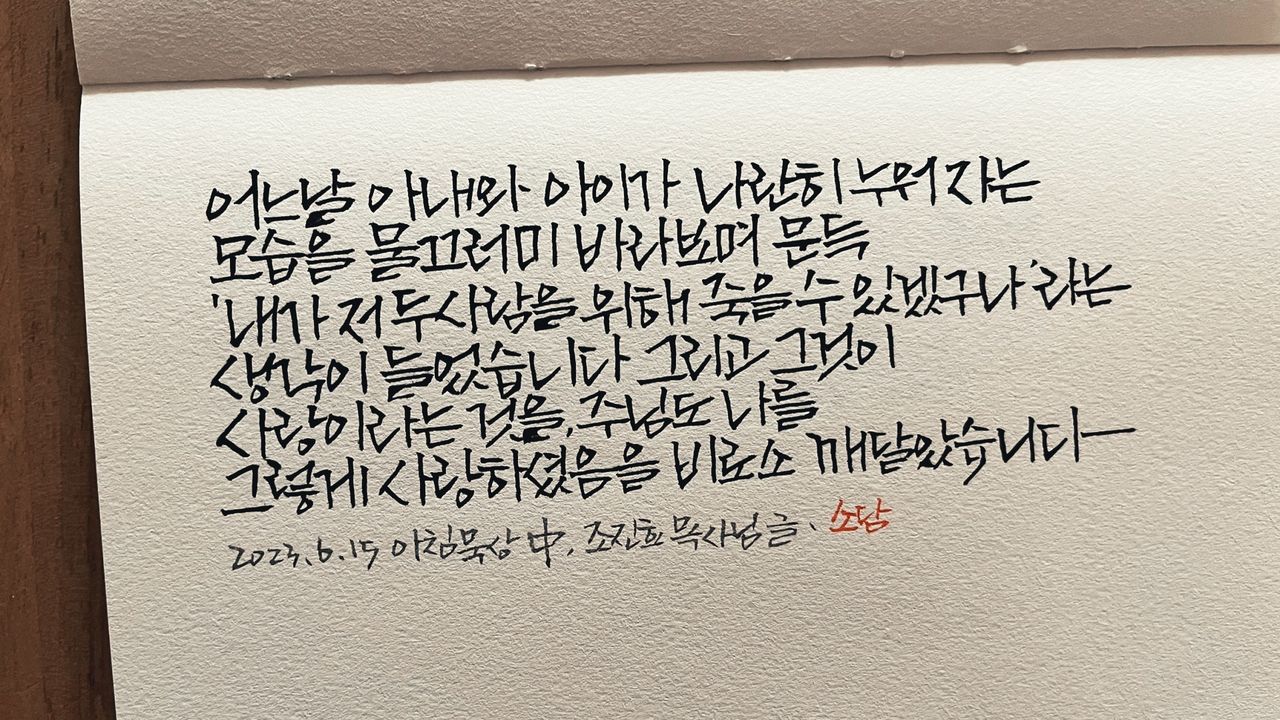 어느날 아내와 아이가 나란히 누워 자는
모습을 물끄러미 바라보며 문득
'내가 저 두사람을 위해 죽을 수 있겠구나'라는
생각이 들었습니다 그리고 그것이
사랑이라는 것을, 주님도 나를
그렇게 사랑하셨음을 비로소 깨달았습니다—
2023.6.15 아침묵상 中, 조진호 목사님 글, 소담